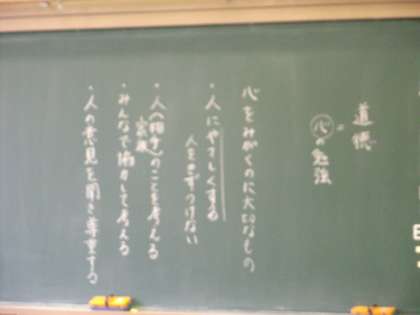 道徳
=
心の勉強
心をみがくのに大切なもの
・人にやさしくする
人をきずつけない
・人(相手)のことを考える
家族
・みんなで協力して考える
・人の意見を聞き尊重する